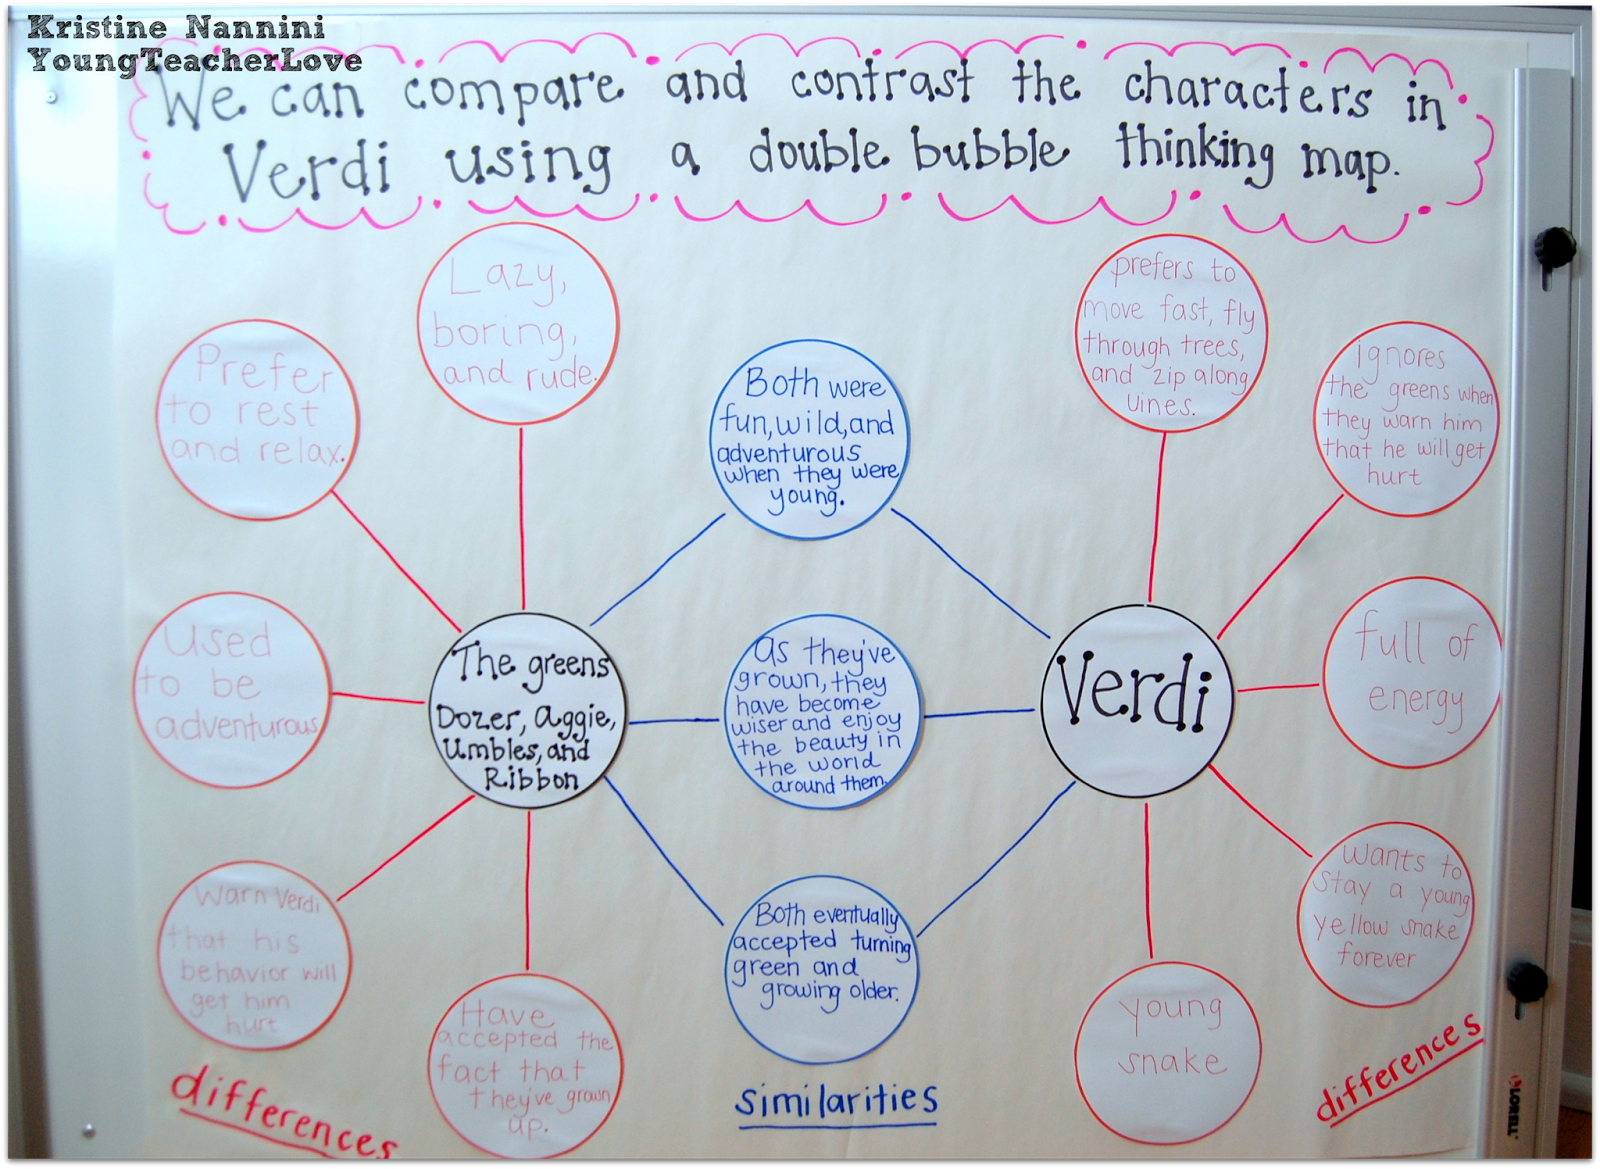 Kristine Nannini
YoungTeacherLove
We can compare and contrast the characters in
Verdi using a double bubble thinking map.
Lazy,
boring,
and rude.
Prefer
to rest
and relax.
Used
to be
adventurous
Warn Verdi
that his
behavior will
get him
hurt
Have
accepted the
fact that
they've grown
up.
differences
The greens
Dozer, Aggie,
Umbles, and
Ribbon
Both were
fun, wild, and
adventurous
when they were
young.
As they've
grown, they
have become
wiser and enjoy
the beauty in
the world
around them.
Both eventually
accepted turning
green and
growing older.
similarities
Verdi
prefers to
move fast, fly
through trees,
and zip along
vines.
ignores
the greens when
they warn him
that he will get
hurt
full of
energy
wants to
stay a young
yellow snake
forever
young
snake
differences
LORELL